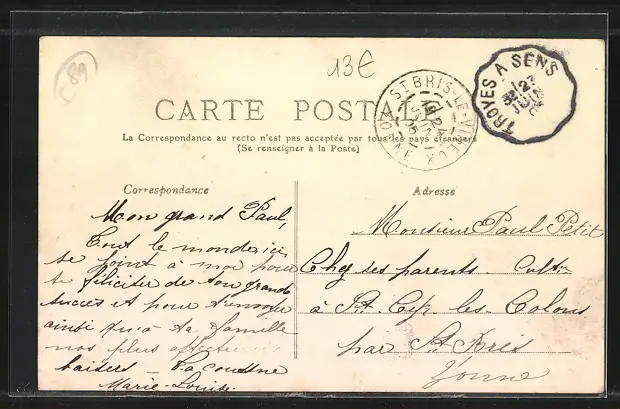 89
13€
CARTE POSTALE
La Correspondance au recto n'est pas acceptée par tous les pays étrangers
(Se renseigner à la Poste)
ST BRIS-LE-VINEUX
YONNE
TROYES A SENS
Correspondance
Adresse
Mon grand Paul,
Tout le monde ici
se joint à moi pour
te féliciter de ton grand
succès et pour t'envoyer
ainsi qu'à ta famille
nos plus affectueux
baisers _ Ta cousine
Marie-Louise.
Monsieur Paul Petit
Chez ses parents. Cultr
à St. Cyr les Colons
par St. Bris
Yonne